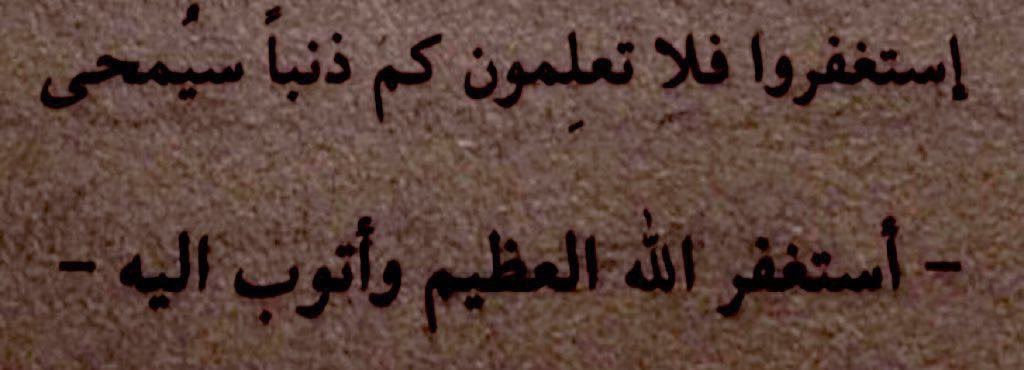 إستغفروا فلا تعلِمون كم ذنباً سيُمحى
- أستغفر الله العظيم وأتوب اليه -